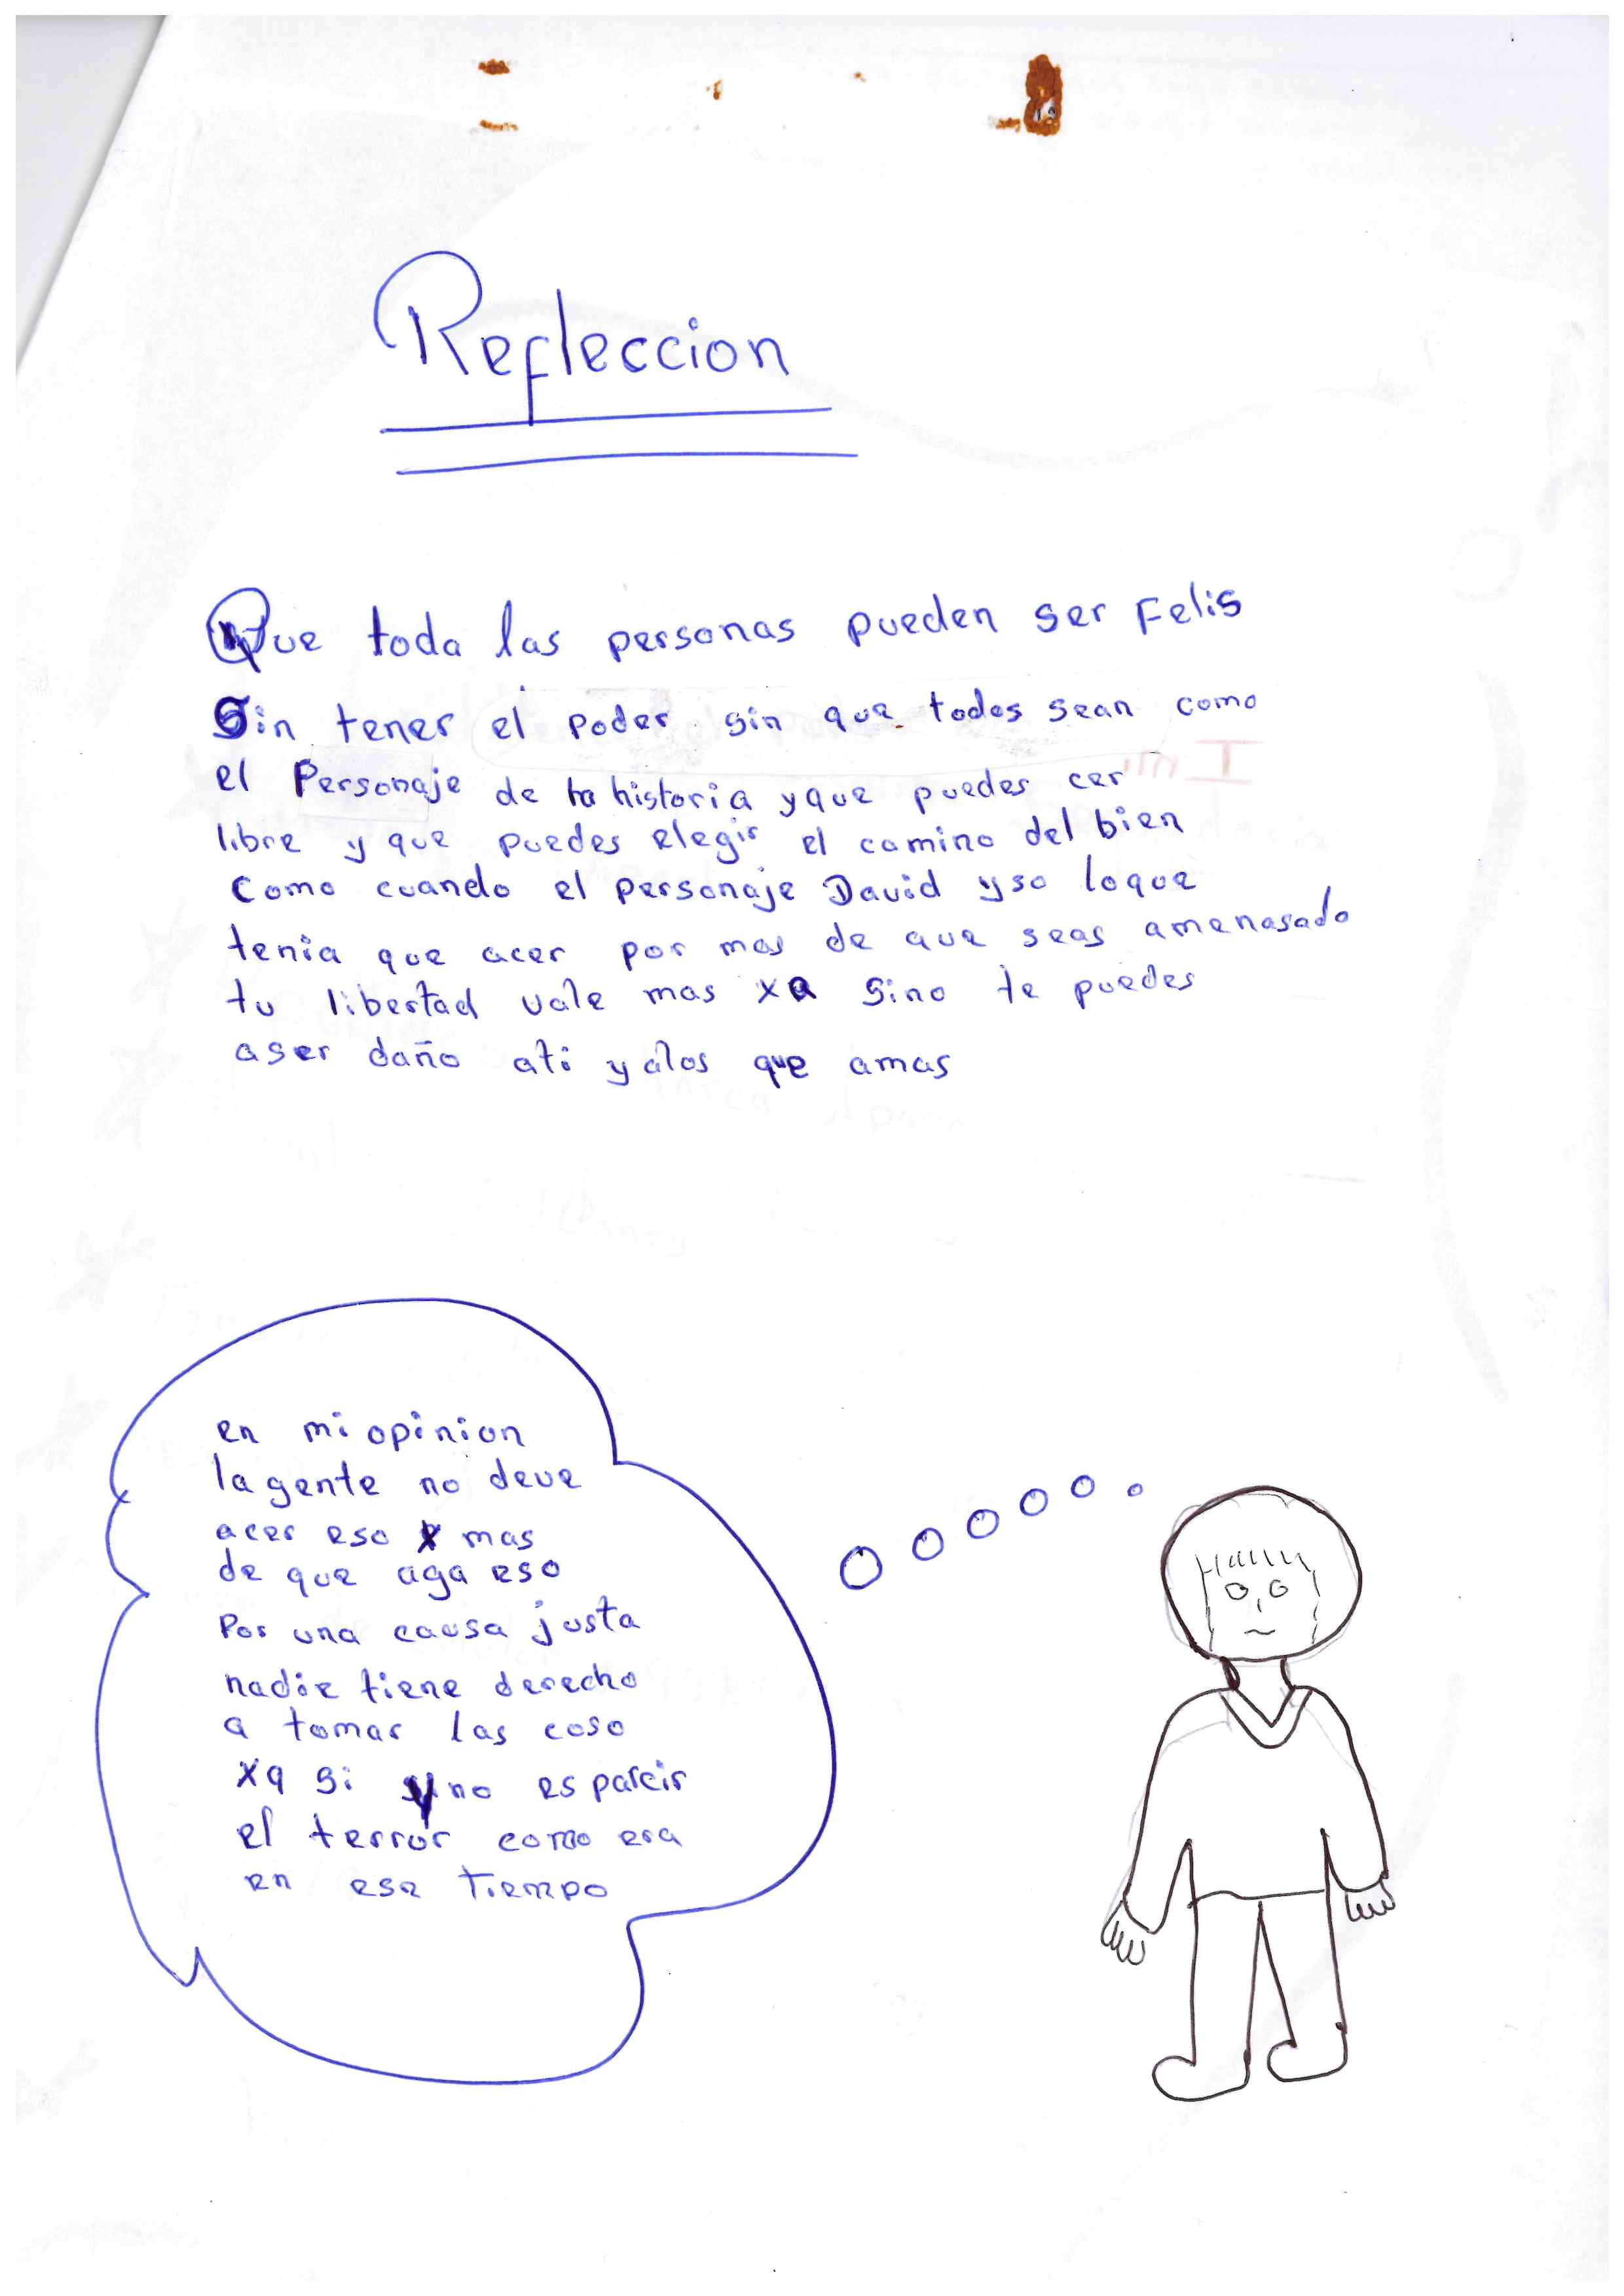 Refleccion
Que toda las personas pueden ser Felis
Sin tener el poder sin que todos sean como
el Personaje de la historia y que puedes cer
libre y que puedes elegir el camino del bien
Como cuando el personaje David yso lo que
tenia que acer por mas de que seas amenasado
tu libertad vale mas xq sino te puedes
aser daño ati y alos que amas
en mi opinion
la gente no deve
acer eso x mas
de que aga eso
Por una causa justa
nadie tiene derecho
a tomar las coso
xq si y no esparcir
el terror como era
en ese tiempo